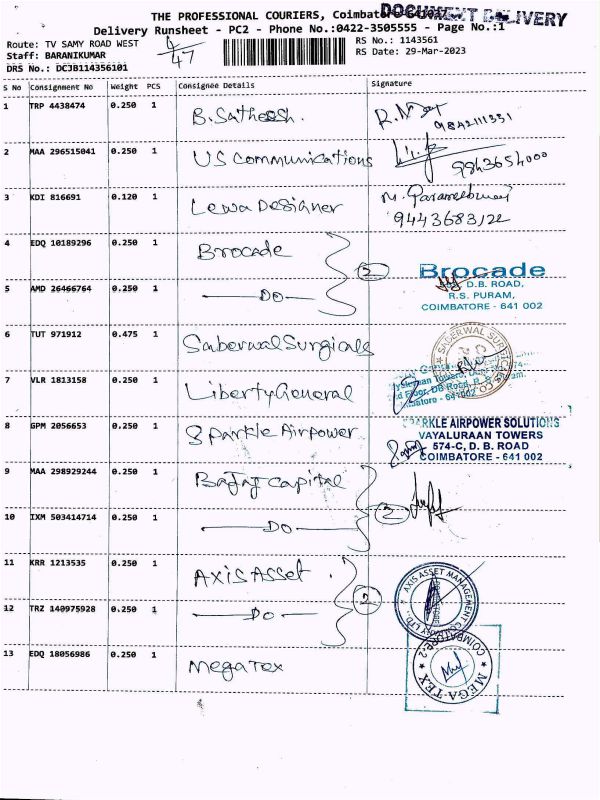 THE PROFESSIONAL COURIERS, Coimbatore
DOCUMENT DELIVERY
Delivery Runsheet - PC2 - Phone No.:0422-3505555 - Page No.:1
Route: TV SAMY ROAD WEST
Staff: BARANIKUMAR
DRS No.: DCJB114356101
4/47
RS No.: 1143561
RS Date: 29-Mar-2023
S No Consignment No Weight PCS Consignee Details Signature
1 TRP 4438474 0.250 1 B. Satheesh.
9842111331
2 MAA 296515041 0.250 1 US Communications
9843654000
3 KDI 816691 0.120 1 Lewa Designer
9443683122
4 EDQ 10189296 0.250 1 Brocade
2
Brocade
D.B. ROAD,
R.S. PURAM,
COIMBATORE - 641 002
5 AMD 26466764 0.250 1 DO
6 TUT 971912 0.475 1 Saberwal Surgicals
7 VLR 1813158 0.250 1 Liberty General
8 GPM 2056653 0.250 1 Sparkle Airpower
SPARKLE AIRPOWER SOLUTIONS
VAYALURAAN TOWERS
574-C, D. B. ROAD
COIMBATORE - 641 002
9 MAA 298929244 0.250 1 Bajaj Capital
2
10 IXM 503414714 0.250 1 DO
11 KRR 1213535 0.250 1 Axis Asset.
2
AXIS ASSET MANAGEMENT
12 TRZ 140975928 0.250 1 DO
13 EDQ 18056986 0.250 1 Mega Tex
COIMBATORE-2
★ MEGA-TEX ★